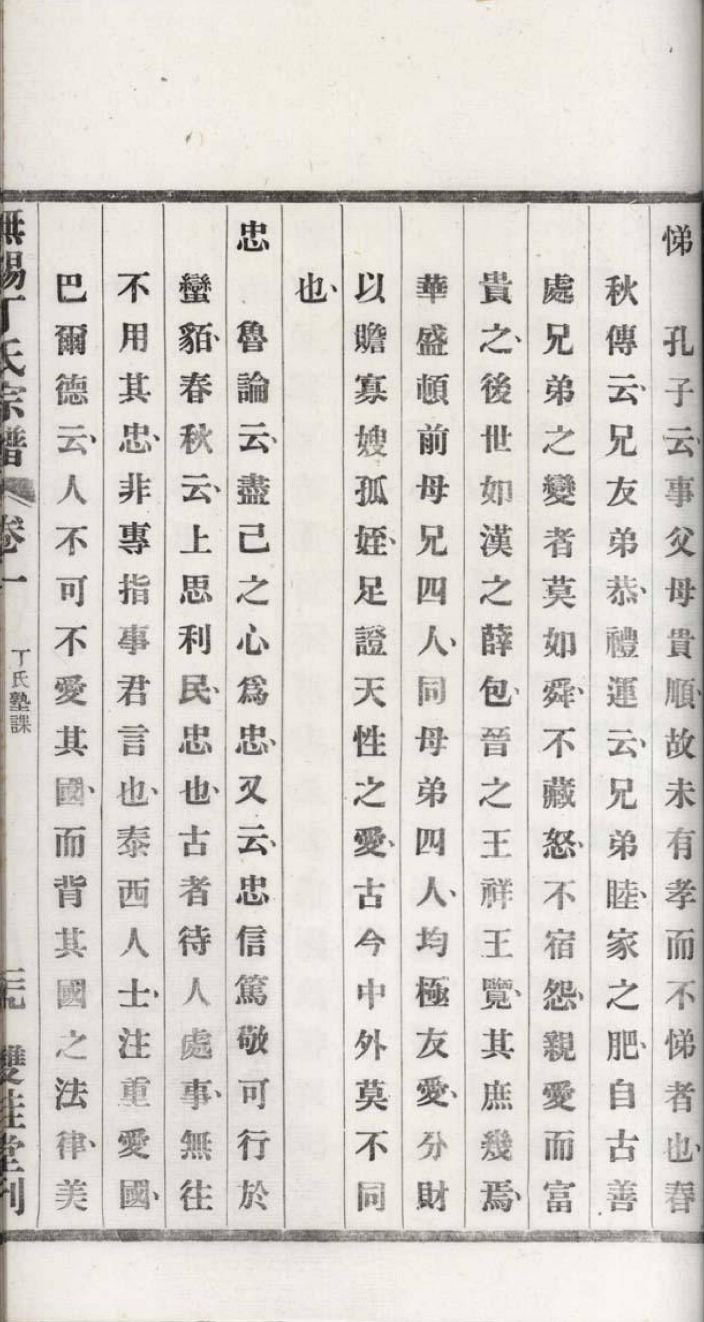 悌　孔子云、事父母貴順、故未有孝而不悌者也、春
秋傳云、兄友弟恭、禮運云、兄弟睦、家之肥、自古善
處兄弟之變者莫如舜、不藏怒、不宿怨、親愛而富
貴之、後世如漢之薛包、晉之王祥王覽、其庶幾焉、
華盛頓前母兄四人、同母弟四人、均極友愛、分財
以贍寡嫂孤姪、足證天性之愛、古今中外莫不同
也、
忠　魯論云、盡己之心爲忠、又云、忠信篤敬可行於
蠻貊、春秋云、上思利民、忠也、古者待人處事、無往
不用其忠、非專指事君言也、泰西人士、注重愛國、
巴爾德云、人不可不愛其國、而背其國之法律、美
無錫丁氏宗譜 卷一 丁氏塾課 雙桂堂刊